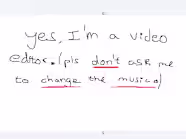 yes, I'm a video
editor. (pls don't ask me
to change the music)